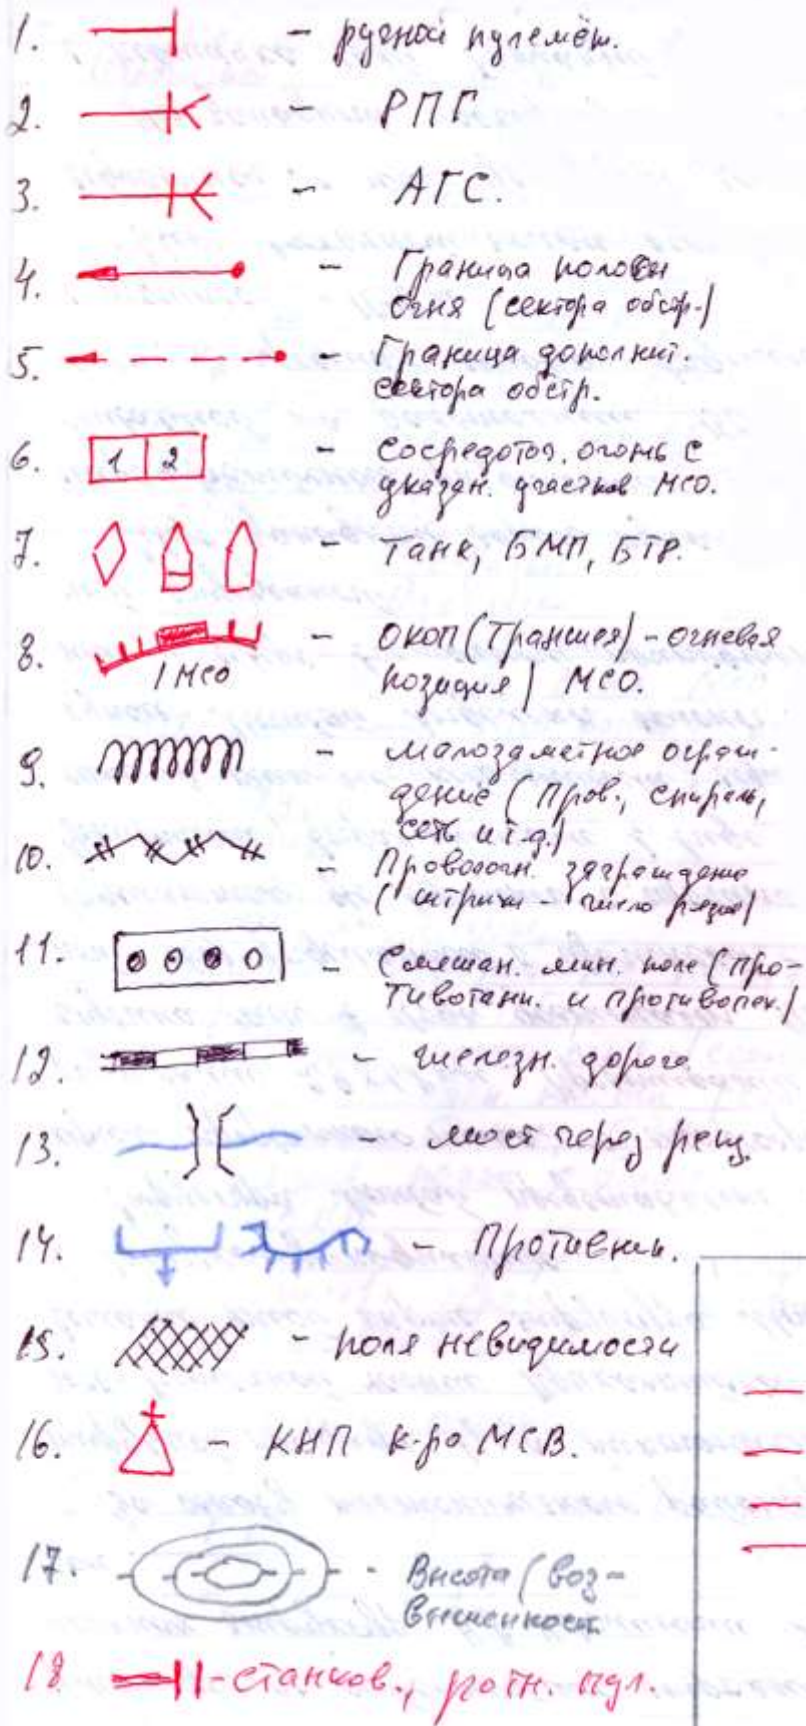 1. - ручной пулемёт.
2. - РПГ
3. - АГС.
4. - Граница полосы
огня (сектора обстр.)
5. - Граница дополнит.
сектора обстр.
6. 1 2 - Сосредоточ. огонь с
указан. участков МСО.
7. - Танк, БМП, БТР.
8. 1 МСО - Окоп (Траншея) - огневая
позиция) МСО.
9. - малозаметное ограж-
дение (Пров., спираль,
сеть и т.д.)
10. - Проволочн. заграждение
(штрихи - число рядов)
11. - Смешан. мин. поле (про-
тивотанк. и противопех.)
12. - железн. дорога
13. - мост через реку
14. - Противник.
15. - поля невидимости
16. - КНП к-ра МСВ.
17. - Высота (воз-
вышенность
18 - станков., ротн. пул.